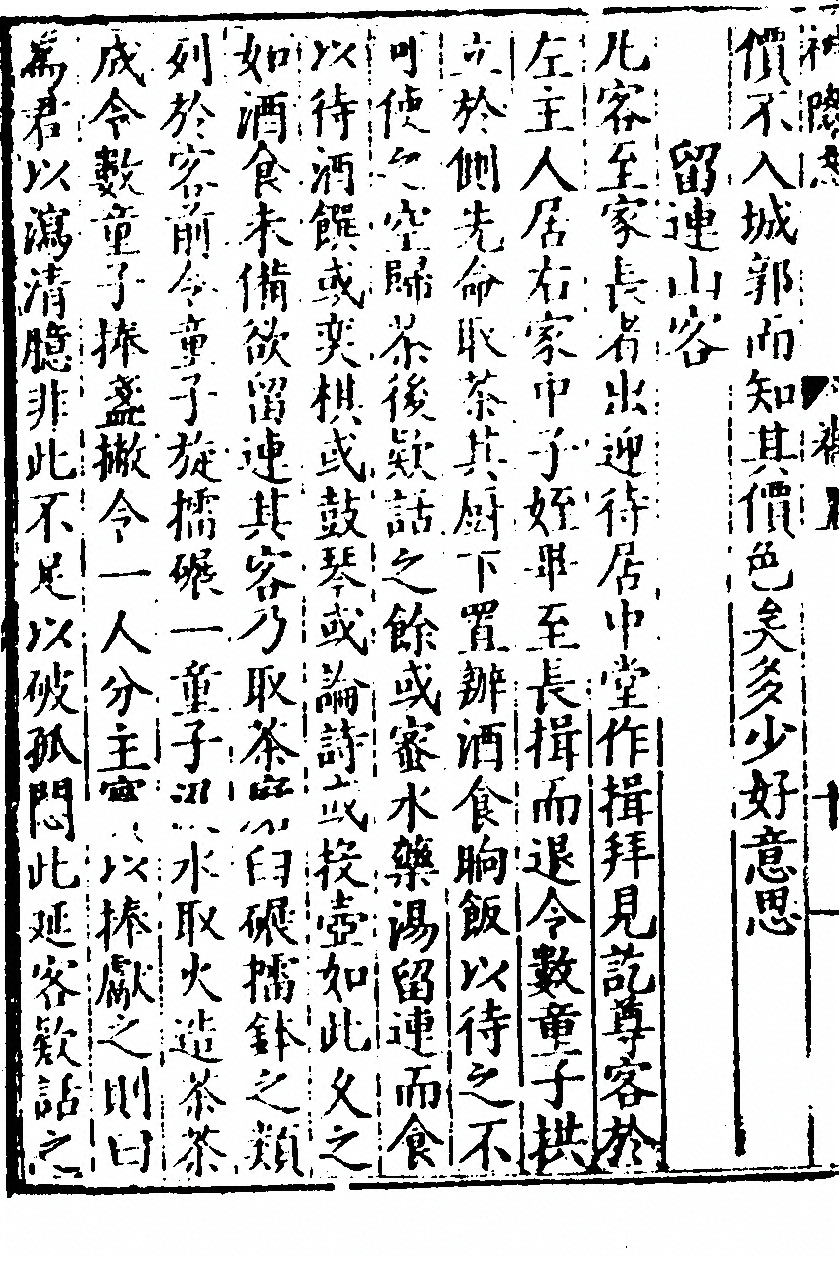 價不入城郭而知其價色矣多少好意思
留連山客
凡客至家長者出迎待居中堂作揖拜見訖尊客於
左主人居右家中子姪畢至長揖而退令數童子拱
立於側先命取茶其厨下置辦酒食晌飯以待之不
可使之空歸茶後欵話之餘或蜜水藥湯留連而食
以待酒饌或奕棋或鼓琴或論詩或投壺如此久之
如酒食未備欲留連其客乃取茶臼碾擂鉢之類
列於客前令童子旋擂碾一童子水取火造茶茶
成令數童子捧盞撇令一人分主賓以捧獻之則曰
為君以瀉清臆非此不足以破孤悶此延客欵話之